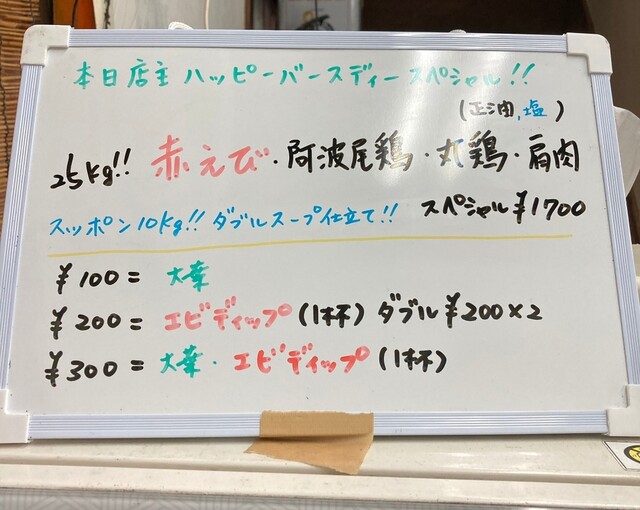 本日店主ハッピーバースディースペシャル!!
(正油,塩)
25kg!! 赤えび・阿波尾鶏・丸鶏・肩肉
スッポン10kg!! ダブルスープ仕立て!! スペシャル¥1700
¥100=大葉
¥200=エビディップ(1杯)ダブル¥200×2
¥300=大葉・エビディップ(1杯)